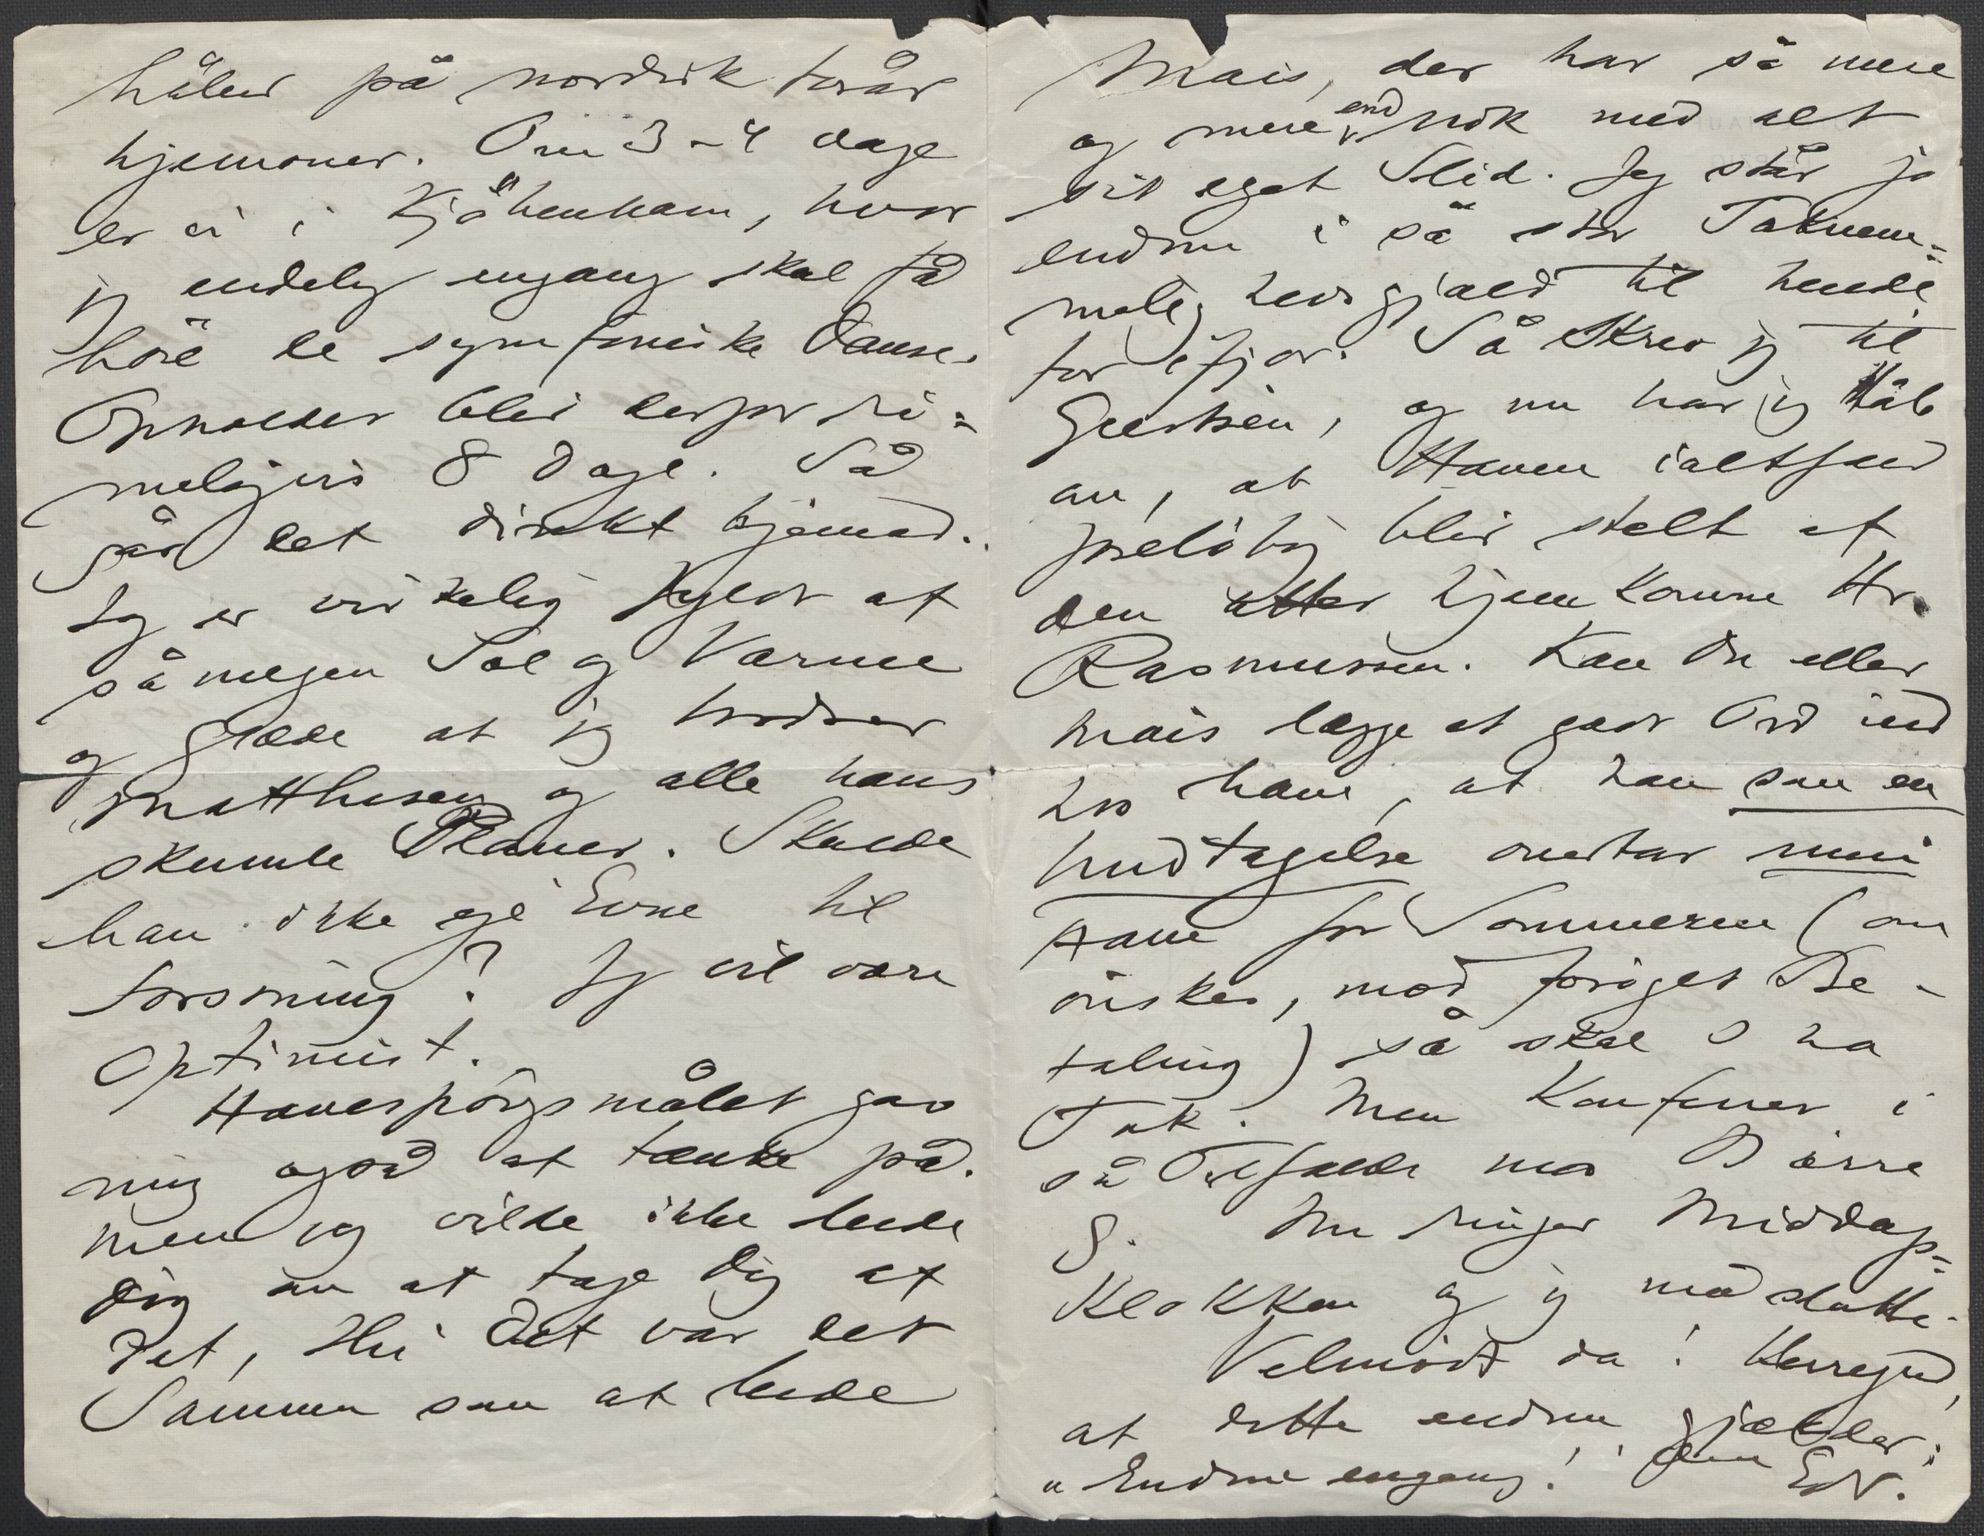 håber på nordisk forår
hjemover. Om 3-4 dage
er vi i Kjöbenham, hvor
jg endelig engang skal få
höre de symfoniske Danse.
Opholdet blir derfor ri=
meligvis 8 Dage. Så
går det direkt hjemad.
Jeg er virkelig fyldt af
så megen Sol og Varme
og Glæde at jg trodser
Matthisen og alle hans
skumle Planer. Skulde
han ikke eje Evne til
Forsoning? Jg vil være
Optimist.
Havespörgsmålet gav
mig også at tænke på.
men jg vilde ikke bede
Dig om at tage Dig af
det, thi det var det
Samme som at bede
Mais, der har så mere
og mere end nok med alt
sit eget Slid. Jeg står jo
endnu i så stor Taknem=
meligheds gjæld til hende
for ifjor. Så skrev jg til
Giertsen, og nu har jg Håb
om, at Haven ialtfald
forelöbig blir stelt af
den atter hjemkomne Hr.
Rasmussen. Kan Du eller
Mais lægge et godt Ord ind
hos ham, at han som en
Undtagelse overtar min
Have for Sommeren (om
önskes, mod foröget Be-
taling) så skal I ha
Tak. Men Konferer i
så Tilfælde med Börre
G. Nu ringer Middags=
klokken og jg må slutte.
Velmödt da! Herregud,
at dette endnu gjælder:
"Endnu engang!" Din Edv.